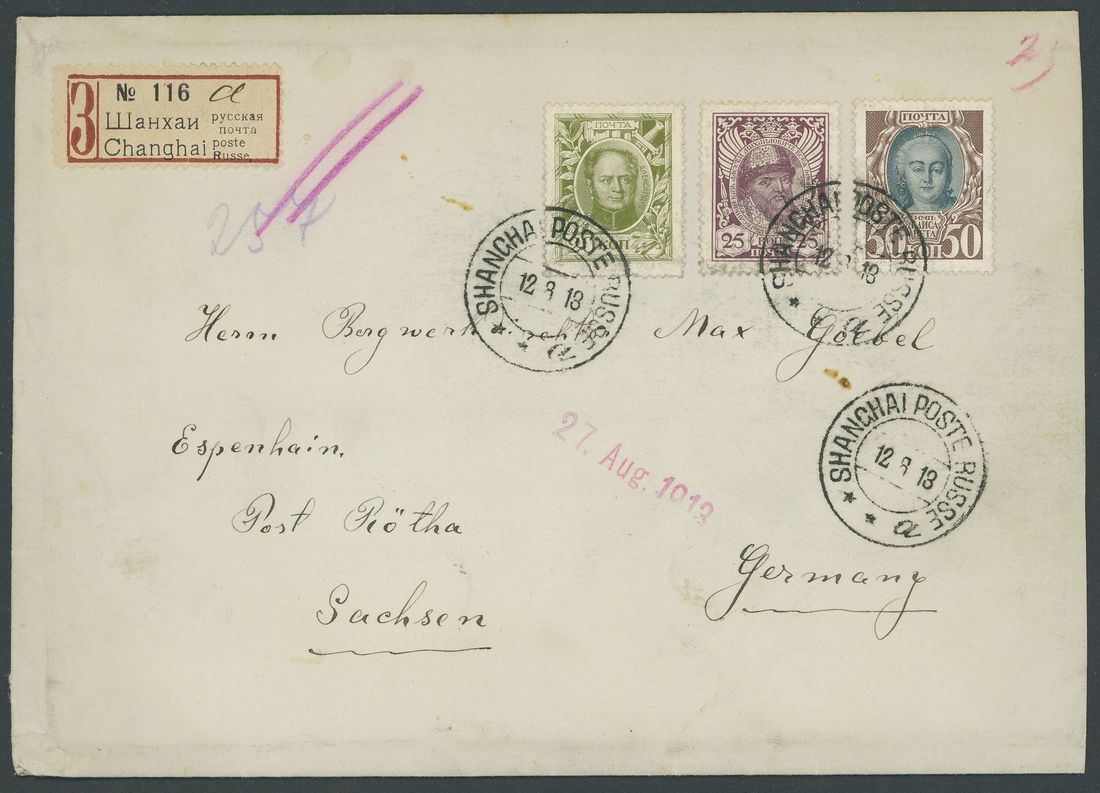 2)
3
№ 116 a
Шанхаи русская почта
Changhai poste Russe
257
ПОЧТА
КОП
25 КОП 25
ПОЧТА
ИМП:
50 КОП 50
SHANGHAI POSTE RUSSE
12 8 13
a
SHANGHAI POSTE RUSSE
12 8 13
a
Herrn Max Goebel
SHANGHAI POSTE RUSSE
12 8 13
a
27. Aug. 1913
Espenhain.
Post Rötha
Germany
Sachsen